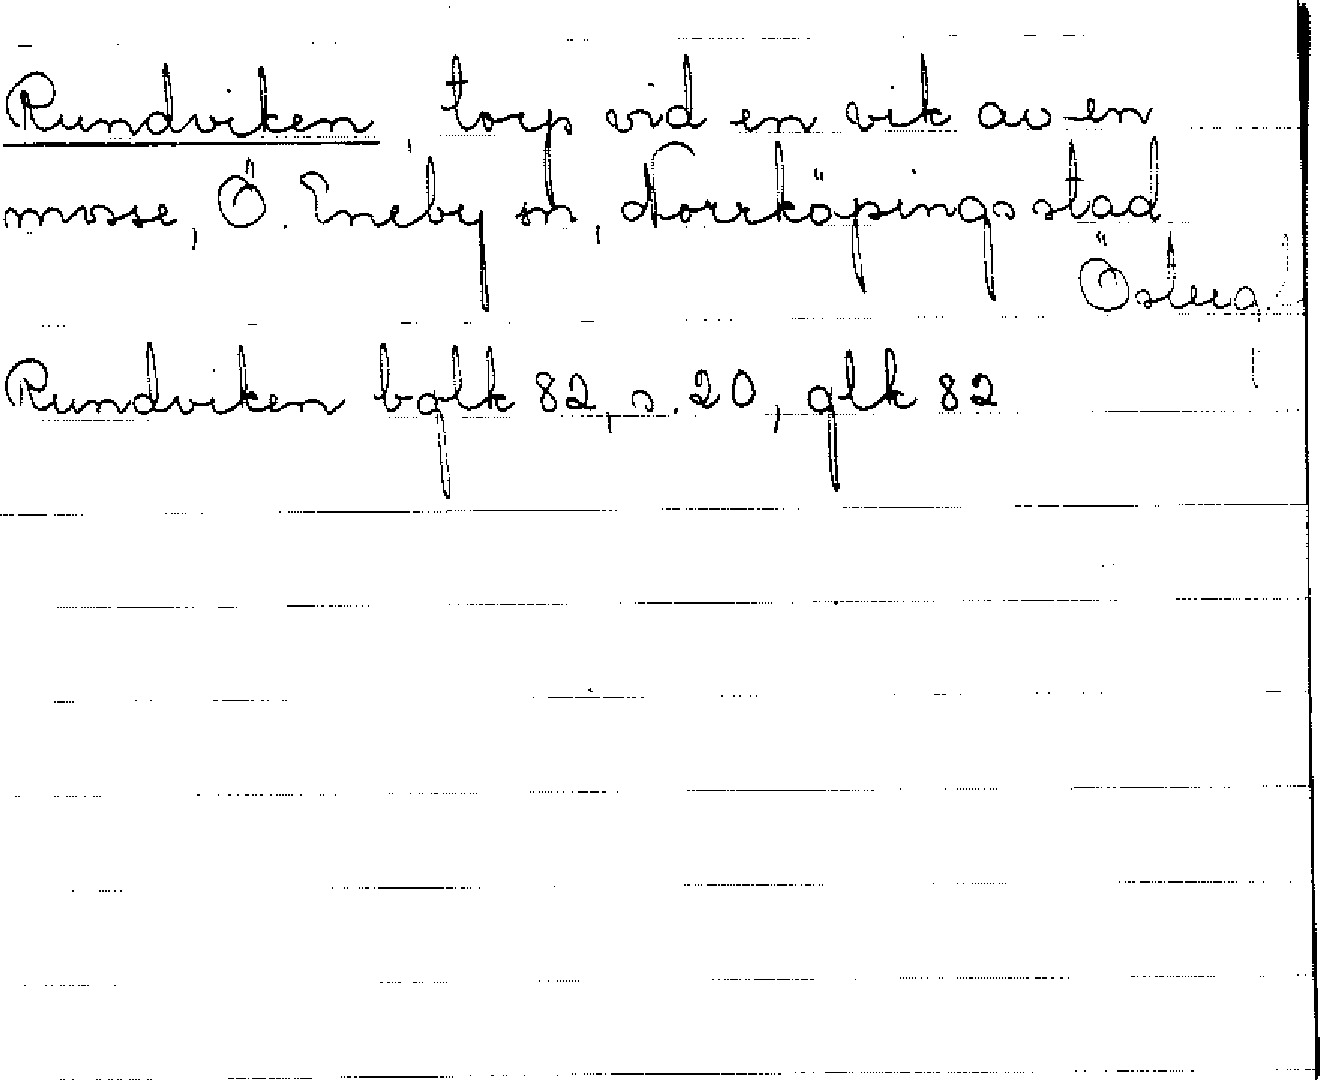 Rundviken, torp vid en vik av en
mosse, Ö. Eneby sn, Norrköpings stad
Österg.
Rundviken bglk 82, s. 20, glk 82